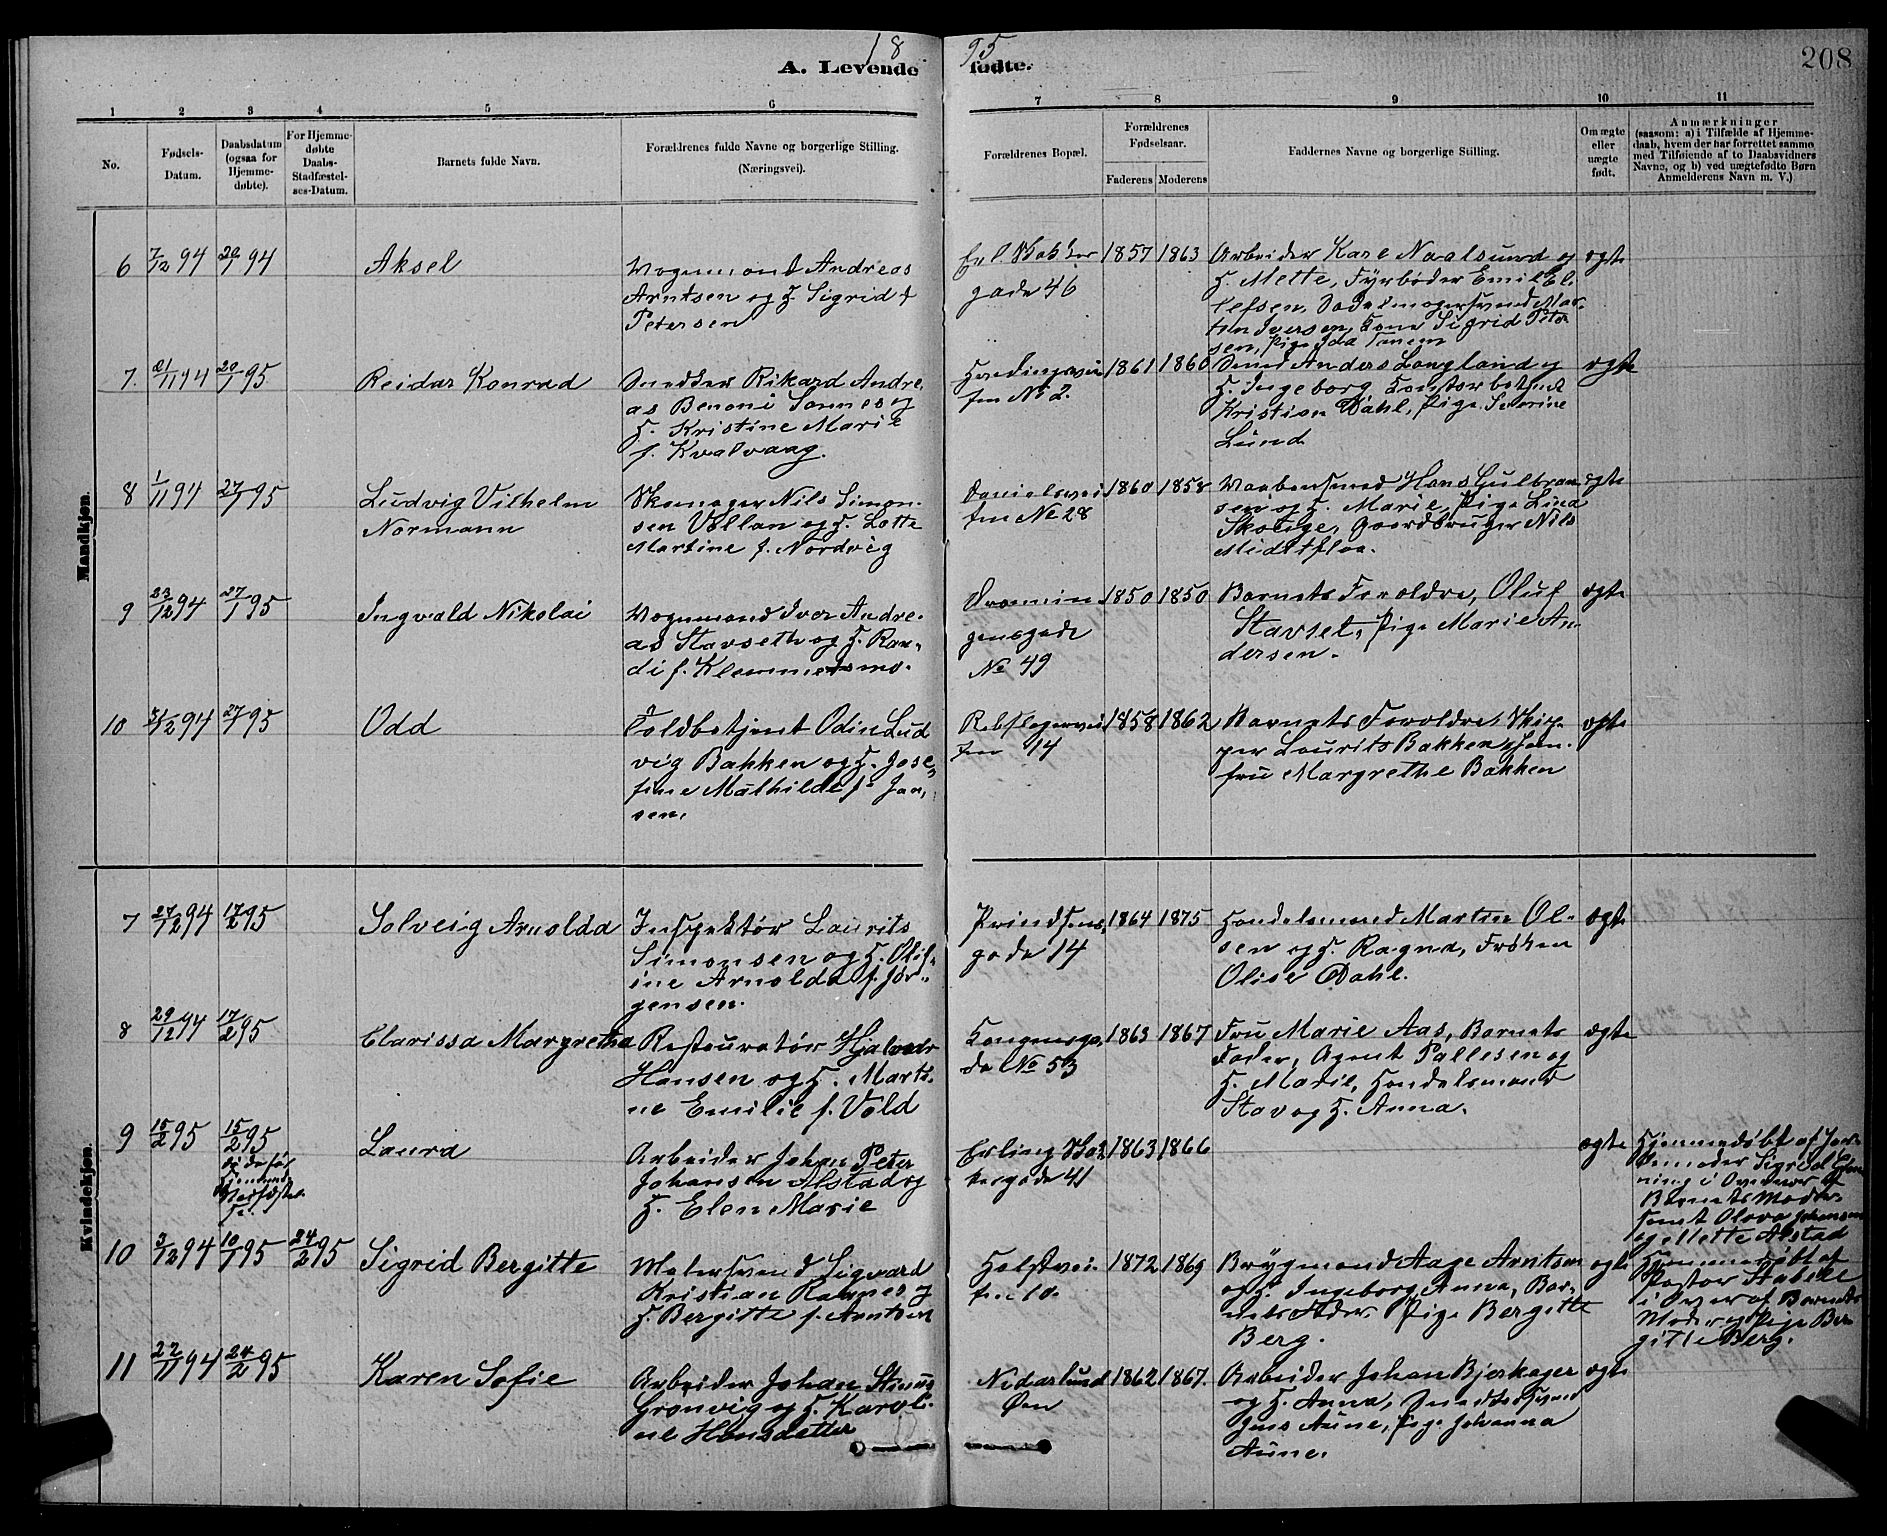 18 95
A. Levende fødte.
208
1 2 3 4 5 6 7 8 9 10 11
No.
Fødsels-
Datum.
Daabsdatum
(ogsaa for
Hjemme-
døbte).
For Hjemme-
døbte
Daabs-
Stadfæstel-
ses-Datum.
Barnets fulde Navn.
Forældrenes fulde Navne og borgerlige Stilling.
(Næringsvei).
Forældrenes Bopæl.
Forældrenes
Fødselsaar.
Faderens Moderens
Faddernes Navne og borgerlige Stilling.
Om ægte
eller
uægte
født.
Anmærkninger
(saasom: a) i Tilfælde af Hjemme-
daab, hvem der har forrettet samme
med Tilføiende af to Daabsvidners
Navne, og b) ved uægtefødte Børn
Anmelderens Navn m. V.)
Mandkjøn.
6 7/12 94 20/1 94
Aksel
Vognmand Andreas
Arntsen og H. Sigrid f.
Petersen
Erl. Bakker
gade 46
1857 1863
Arbeider Karl Naalsund og
H. Mette, Fyrbøder Emil El-
lefsen, Sadelmagersvend Mar-
tin Iversen, Kone Sigrid Peter
sen, Pige Ida
ægte
7. 11 94 20/1 95
Reidar Konrad
Snedker Rikard Andre
as Benoni Sannes og
H. Kristine Marie
f. Kvalvaag.
ten No 2.
1861 1860
Smed Anders Langland og
H. Ingeborg, Kontorbetjent
Kristian Dahl, Pige Severine
Lund
ægte
8 1/11 94 27/1 95
Ludvig Vilhelm
Normann
Skomager Nils Simon-
sen Vollan og H. Lotte
Martine f. Nordvig
Danielsvei
ten No 28
1860 1858
Vaabensmed Hans Gulbran
sen og H. Marie, Pige Lina
Gaardbruger Nils
Midtfloa.
ægte
9 23/12 94 27/1 95
Ingvald Nikolai
Vognmand Ivar Andre-
as Stavseth og H. Ran-
di f. Klemmetsmo.
Dronnin
gensgade
No 49
1850 1850
Barnets Forældre, Oluf
Stavset, Pige Marie An
dersen.
ægte
10 94 27/1 95
Odd
Toldbetjent Odin Lud
vig Bakken og H. Jose-
fine Mathilde f. Jan-
sen.
Rebslagervei
ten 14
1858 1862
Barnets Forældre, Skip-
per Laurits Bakken, Jom-
fru Margrethe Bakken
ægte
Kvindekjøn.
7 27/12 94 17/2 95
Solveig Arnolda
Inspektør Laurits
Simonsen og H. Olif-
ine Arnolda f. Jør-
gensen.
Prindsens
gade 14
1864 1875
Handelsmand Martin Ol-
sen og H. Ragna, Frøken
Olise Dahl.
ægte
8 29/12 94 17/2 95
Clarissa Margretha
Restauratør Hjalmar
Hansen og H. Marti-
ne Emilie f. Vold
Kongensga
de No 53
1863 1867
Fru Marie Aas, Barnets
Fader, Agent Pallesen og
H. Marie, Handelsmand
Stav og H. Anna.
ægte
9 15/2 95 15/2 95
Laura
Arbeider Johan Peter
Johansen Alstad og
H. Elen Marie
Erling Bak
kergade 41
1863 1866
ægte
Hjemmedøbt af Jor-
demoder Sigrid
ning i Overvær af
Barnets Moder
samt Olava Johansen
og Mette Alstad
10 3/12 94 10/1 95 24/2 95
Sigrid Bergitte
Malersvend Sigvard
Kristian Rannes og
H. Bergitte f. Arntsen
Holstvei
ten 10.
1872 1869
Brygmand Aage Arntsen
og H. Ingeborg Anna, Bar-
nets Fader, Pige Bergitte
Berg.
ægte
Hjemmedøbt af
Pastor
i Overvær af Barnets
Moder og Pige Ber
gitte Berg.
11 22/11 94 24/2 95
Karen Sofie
Arbeider Johan
Grønvig og H. Karoli-
ne Hansdatter
Nidarlund
Øen
1862 1867.
Arbeider Johan Bjerkager
og H. Anna, Snedkersvend
Jens Aune, Pige Johanna
Aune.
ægte